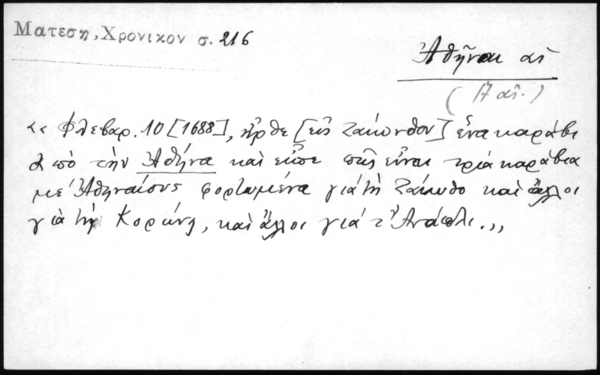 Ματεση, Χρονικον σ. 216
Ἀθῆναι αἱ
(17 αἰ.)
«Φλεβαρ. 10 [1688], ἦρθε [εἰς Ζάκυνθον] ἕνα καράβι
ἀπὸ τὴν Ἀθήνα καὶ εἶπε πῶς εἶναι τρία καράβια
μὲ Ἀθηναίους φορτωμένα γιὰ τὴ Ζάκυθο καὶ ἄλλοι
γιὰ τὴ Κορώνη, καὶ ἄλλοι γιά τ' Ἀνάπλι.»